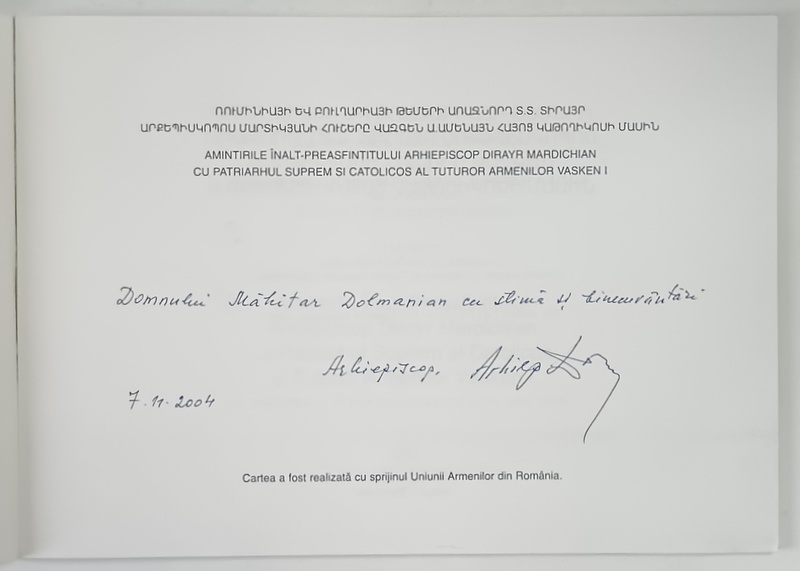 ՌՈՒՄԻՆԻԱՅԻ ԵՎ ԲՈՒԼՂԱՐԻԱՅԻ ԹԵՄԵՐԻ ԱՌԱՋՆՈՐԴ Տ.Տ. ՏԻՐԱՅՐ
ԱՐՔԵՊԻՍԿՈՊՈՍ ՄԱՐՏԻԿՅԱՆԻ ՀՈՒՇԵՐԸ ՎԱԶԳԵՆ Ա.ԱՄԵՆԱՅՆ ՀԱՅՈՑ ԿԱԹՈՂԻԿՈՍԻ ՄԱՍԻՆ
AMINTIRILE ÎNALT-PREASFINTITULUI ARHIEPISCOP DIRAYR MARDICHIAN
CU PATRIARHUL SUPREM SI CATOLICOS AL TUTUROR ARMENILOR VASKEN I
Domnului Măhitar Dolmanian cu stimă și binecuvântări
Arhiepiscop, Arhiep
7.11.2004
Cartea a fost realizată cu sprijinul Uniunii Armenilor din România.